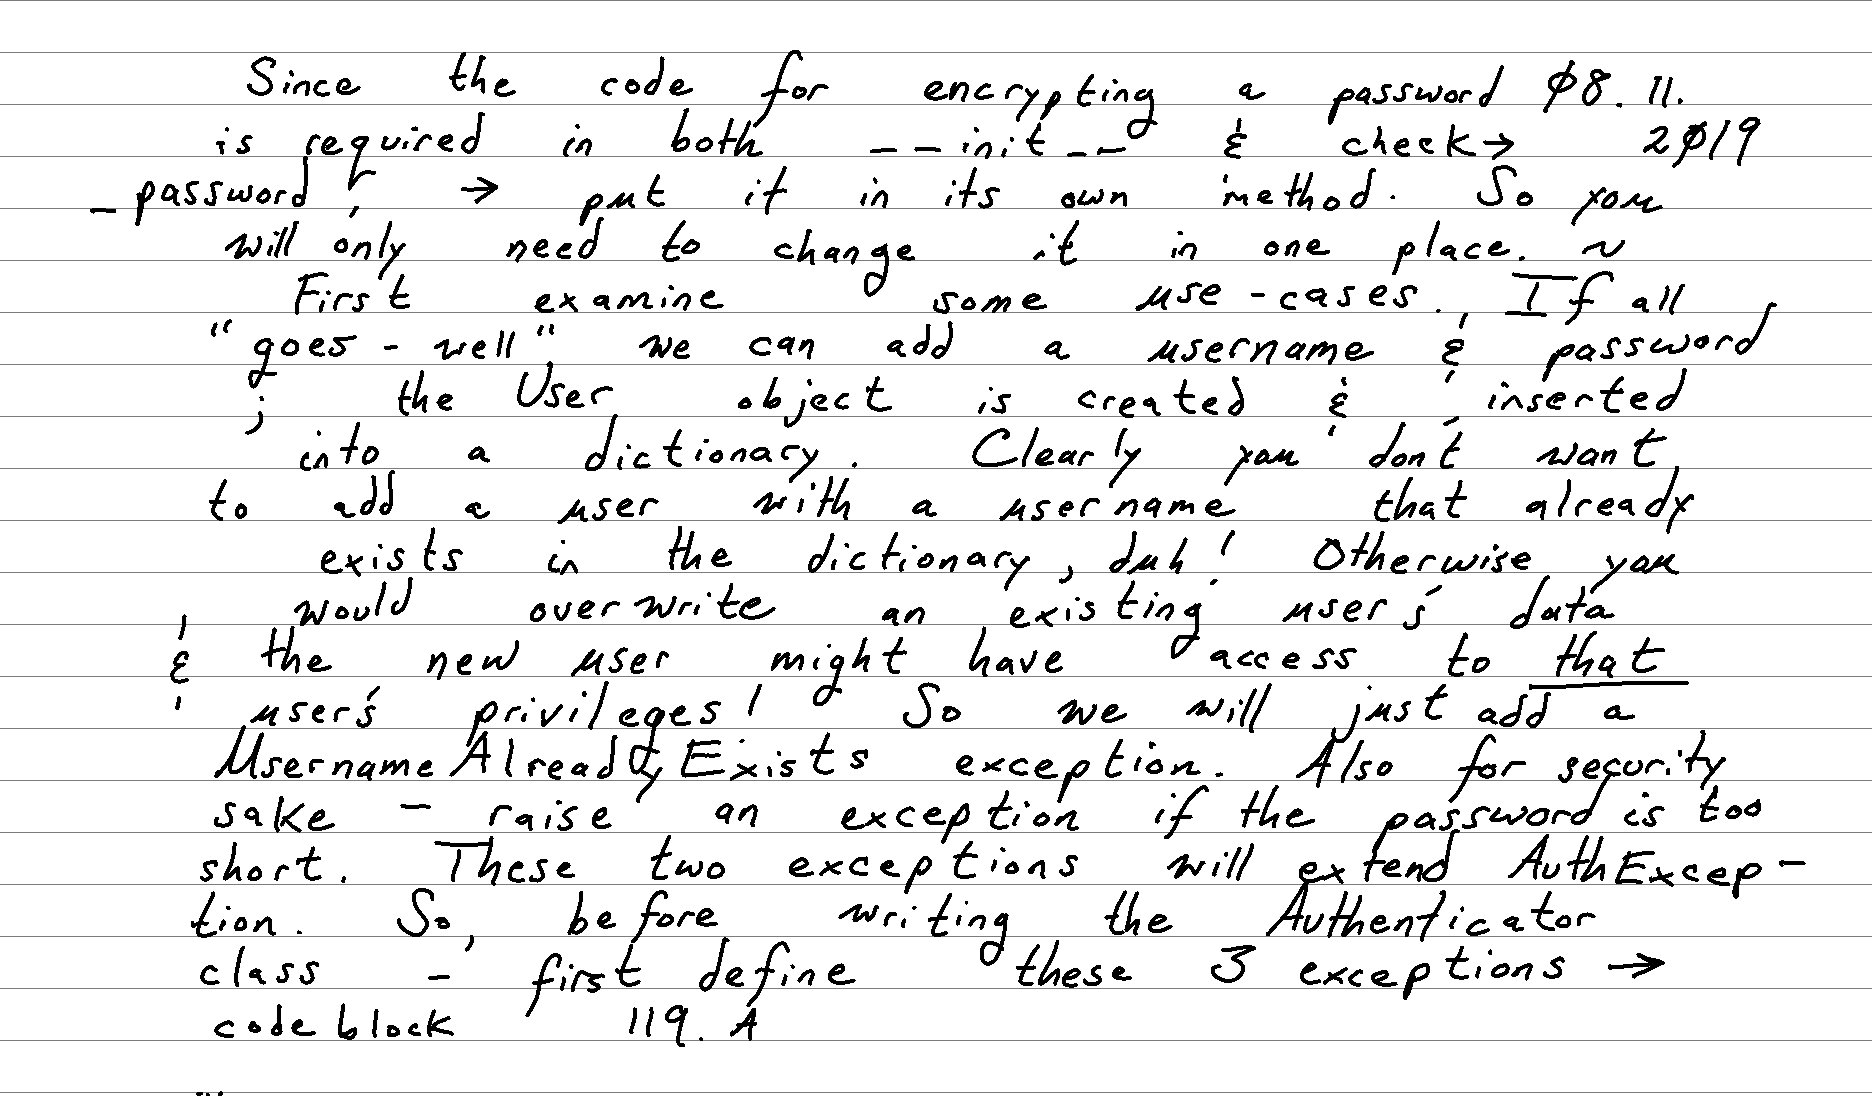 Since the code for encrypting a password ø8.11.
is required in both __init__ & check→ 2ø19
_password, → put it in its own method. So you
will only need to change it in one place. ~
First examine some use-cases. If all
"goes-well" we can add a username & password
; the User object is created & inserted
into a dictionary. Clearly you don't want
to add a user with a username that already
exists in the dictionary, duh! Otherwise you
would overwrite an existing user's data
& the new user might have access to that
user's privileges! So we will just add a
UsernameAlreadyExists exception. Also for security
sake - raise an exception if the password is too
short. These two exceptions will extend AuthExcep-
tion. So, before writing the Authenticator
class - first define these 3 exceptions →
code block 119.A